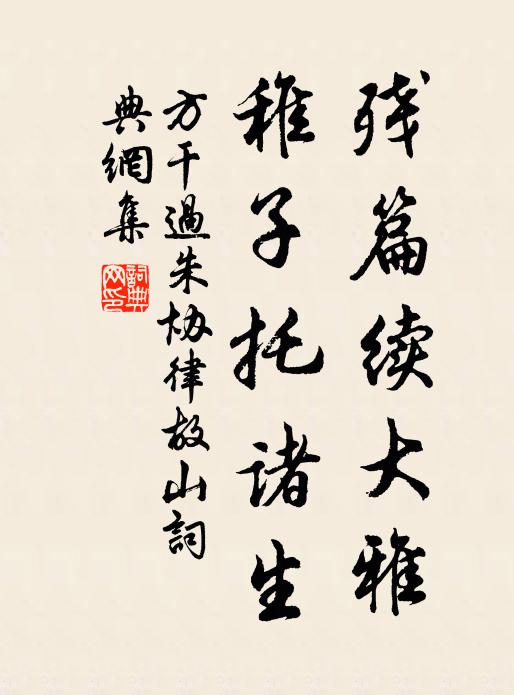 残篇续大雅
稚子托诸生
方干過朱协律故山詞
典網集
詞典
网印